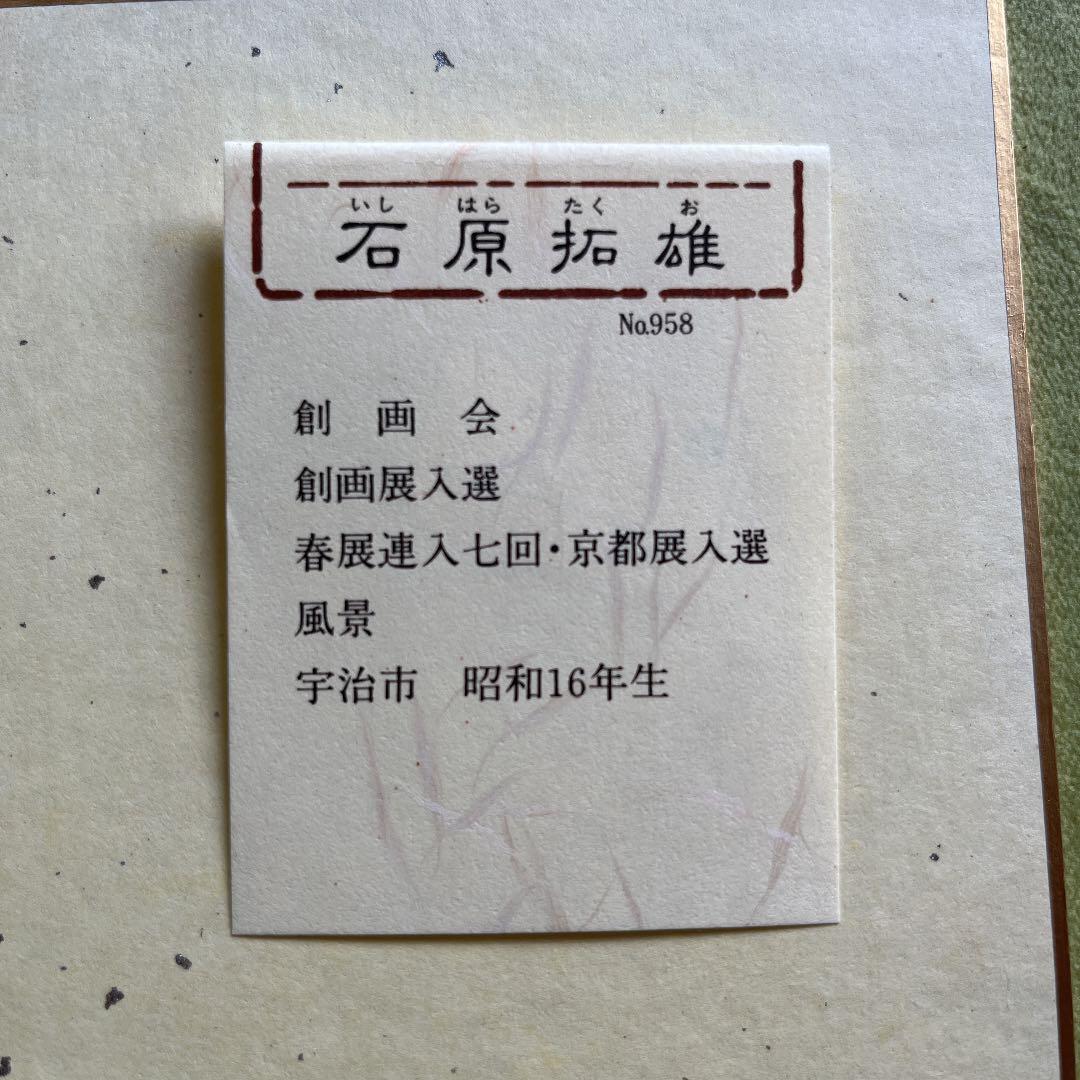 いし はら たく お
石原拓雄
№958
創 画 会
創画展入選
春展連入七回・京都展入選
風景
宇治市 昭和16年生